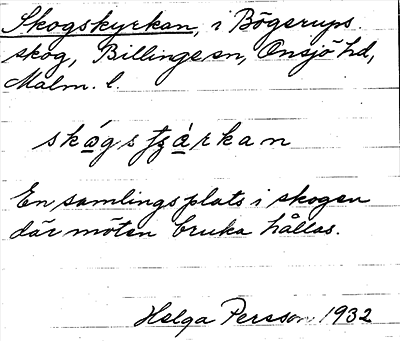 Skogskyrkan, i Bögerups
skog, Billinge sn, Onsjö hd,
Malm. l.
skågstjärkan
En samlingsplats i skogen
där möten bruka hållas.
Helga Persson 1932